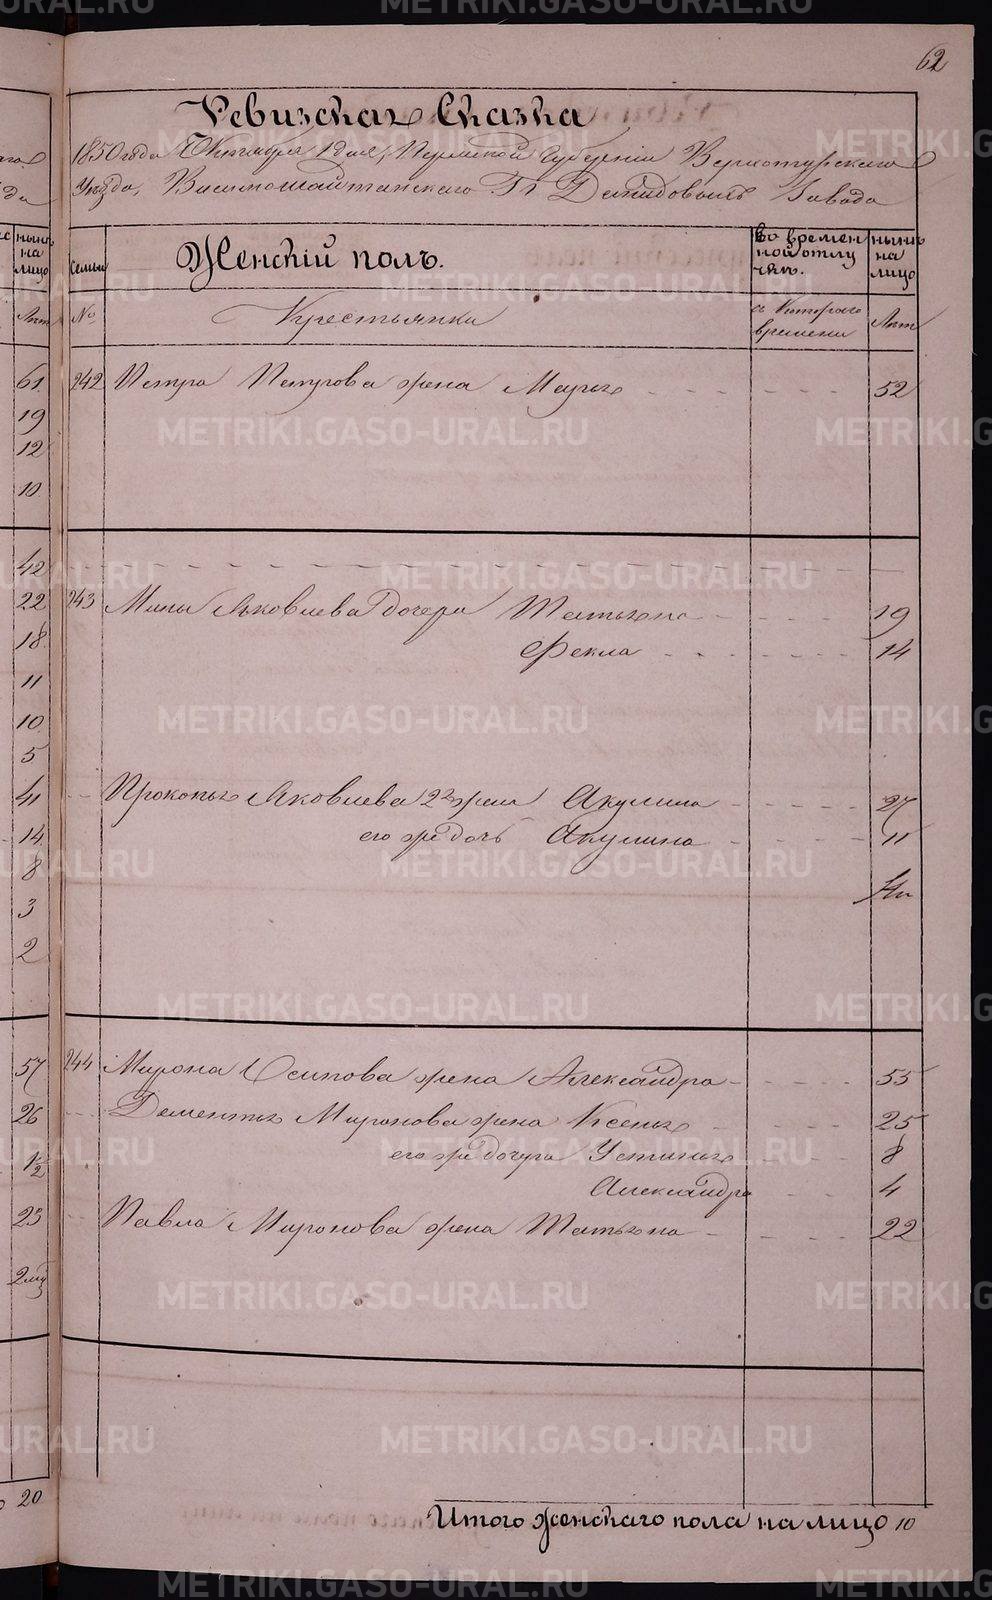 62
Ревизская Сказка
1850 года Октября 1 дня, Пермской Губернiи Верхотурского
Уезда, Висимошайтанского Гг Демидовыхъ Завода
семьи
Женскiй полъ.
во времен
ной отлу
чке.
ныне
на
лицо
№
Крестьянки
съ котораго
времени
Лет
242 Петра Петрова жена Марья 52
243 Мины Яковлева дочери Татьяна 19
Фекла 14
Прокопья Яковлева 2я жена Акулина 27
его же дочь Акулина 11
244 Мирона Осипова жена Александра 55
Дементья Миронова жена Ксенья 25
его же дочери Устинья 8
Александра 4
Павла Миронова жена Татьяна 22
Итого женскаго пола на лицо 10
ныне
на
лицо
Лет
61
19
12
10
42
22
18
11
10
5
41
14
8
3
2
57
26
1/2
23
20
METRIKI.GASO-URAL.RU